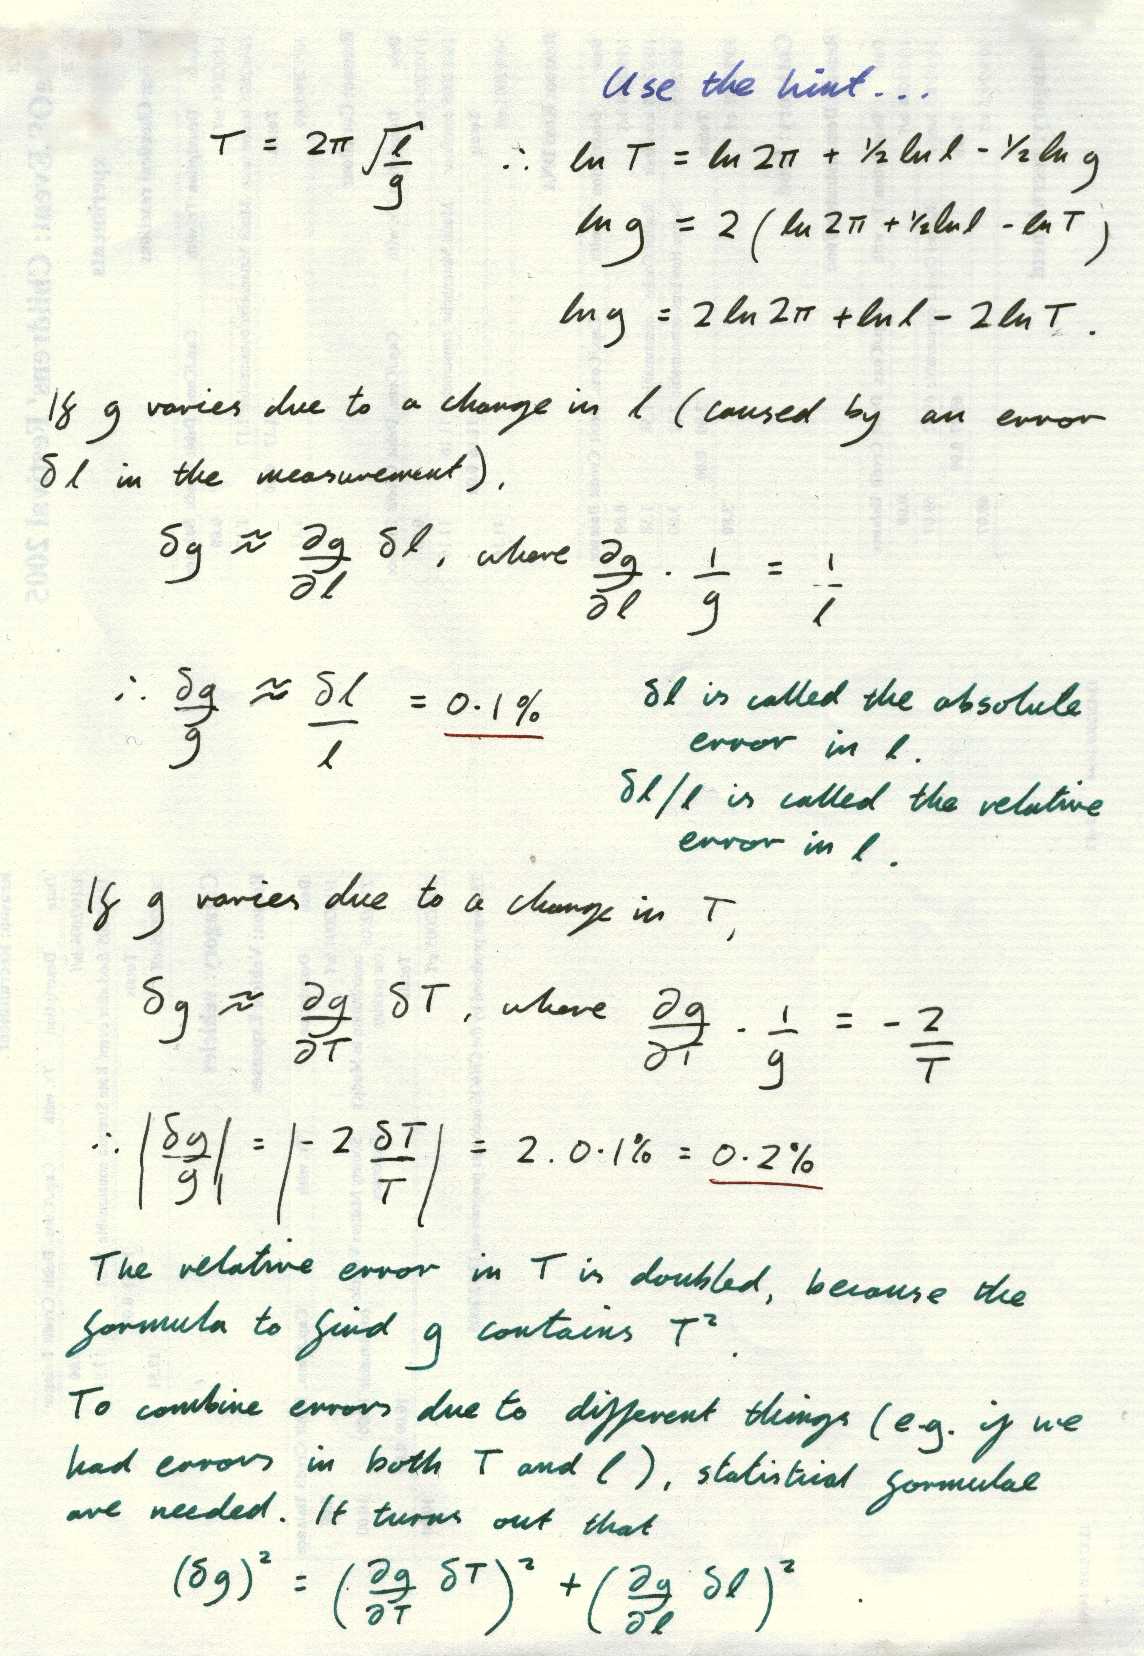 Use the hint...
T = 2π √(l/g) ∴ ln T = ln 2π + ½ ln l - ½ ln g
ln g = 2 (ln 2π + ½ ln l - ln T)
ln g = 2 ln 2π + ln l - 2 ln T.
If g varies due to a change in l (caused by an error
δl in the measurement),
δg ≈ ∂g/∂l δl, where ∂g/∂l . 1/g = 1/l
∴ δg/g ≈ δl/l = 0.1%
δl is called the absolute
error in l.
δl/l is called the relative
error in l.
If g varies due to a change in T,
δg ≈ ∂g/∂T δT, where ∂g/∂T . 1/g = - 2/T
∴ |δg/g| = |- 2 δT/T| = 2. 0.1% = 0.2%
The relative error in T is doubled, because the
formula to find g contains T².
To combine errors due to different things (e.g. if we
had errors in both T and l), statistical formulae
are needed. It turns out that
(δg)² = (∂g/∂T δT)² + (∂g/∂l δl)².